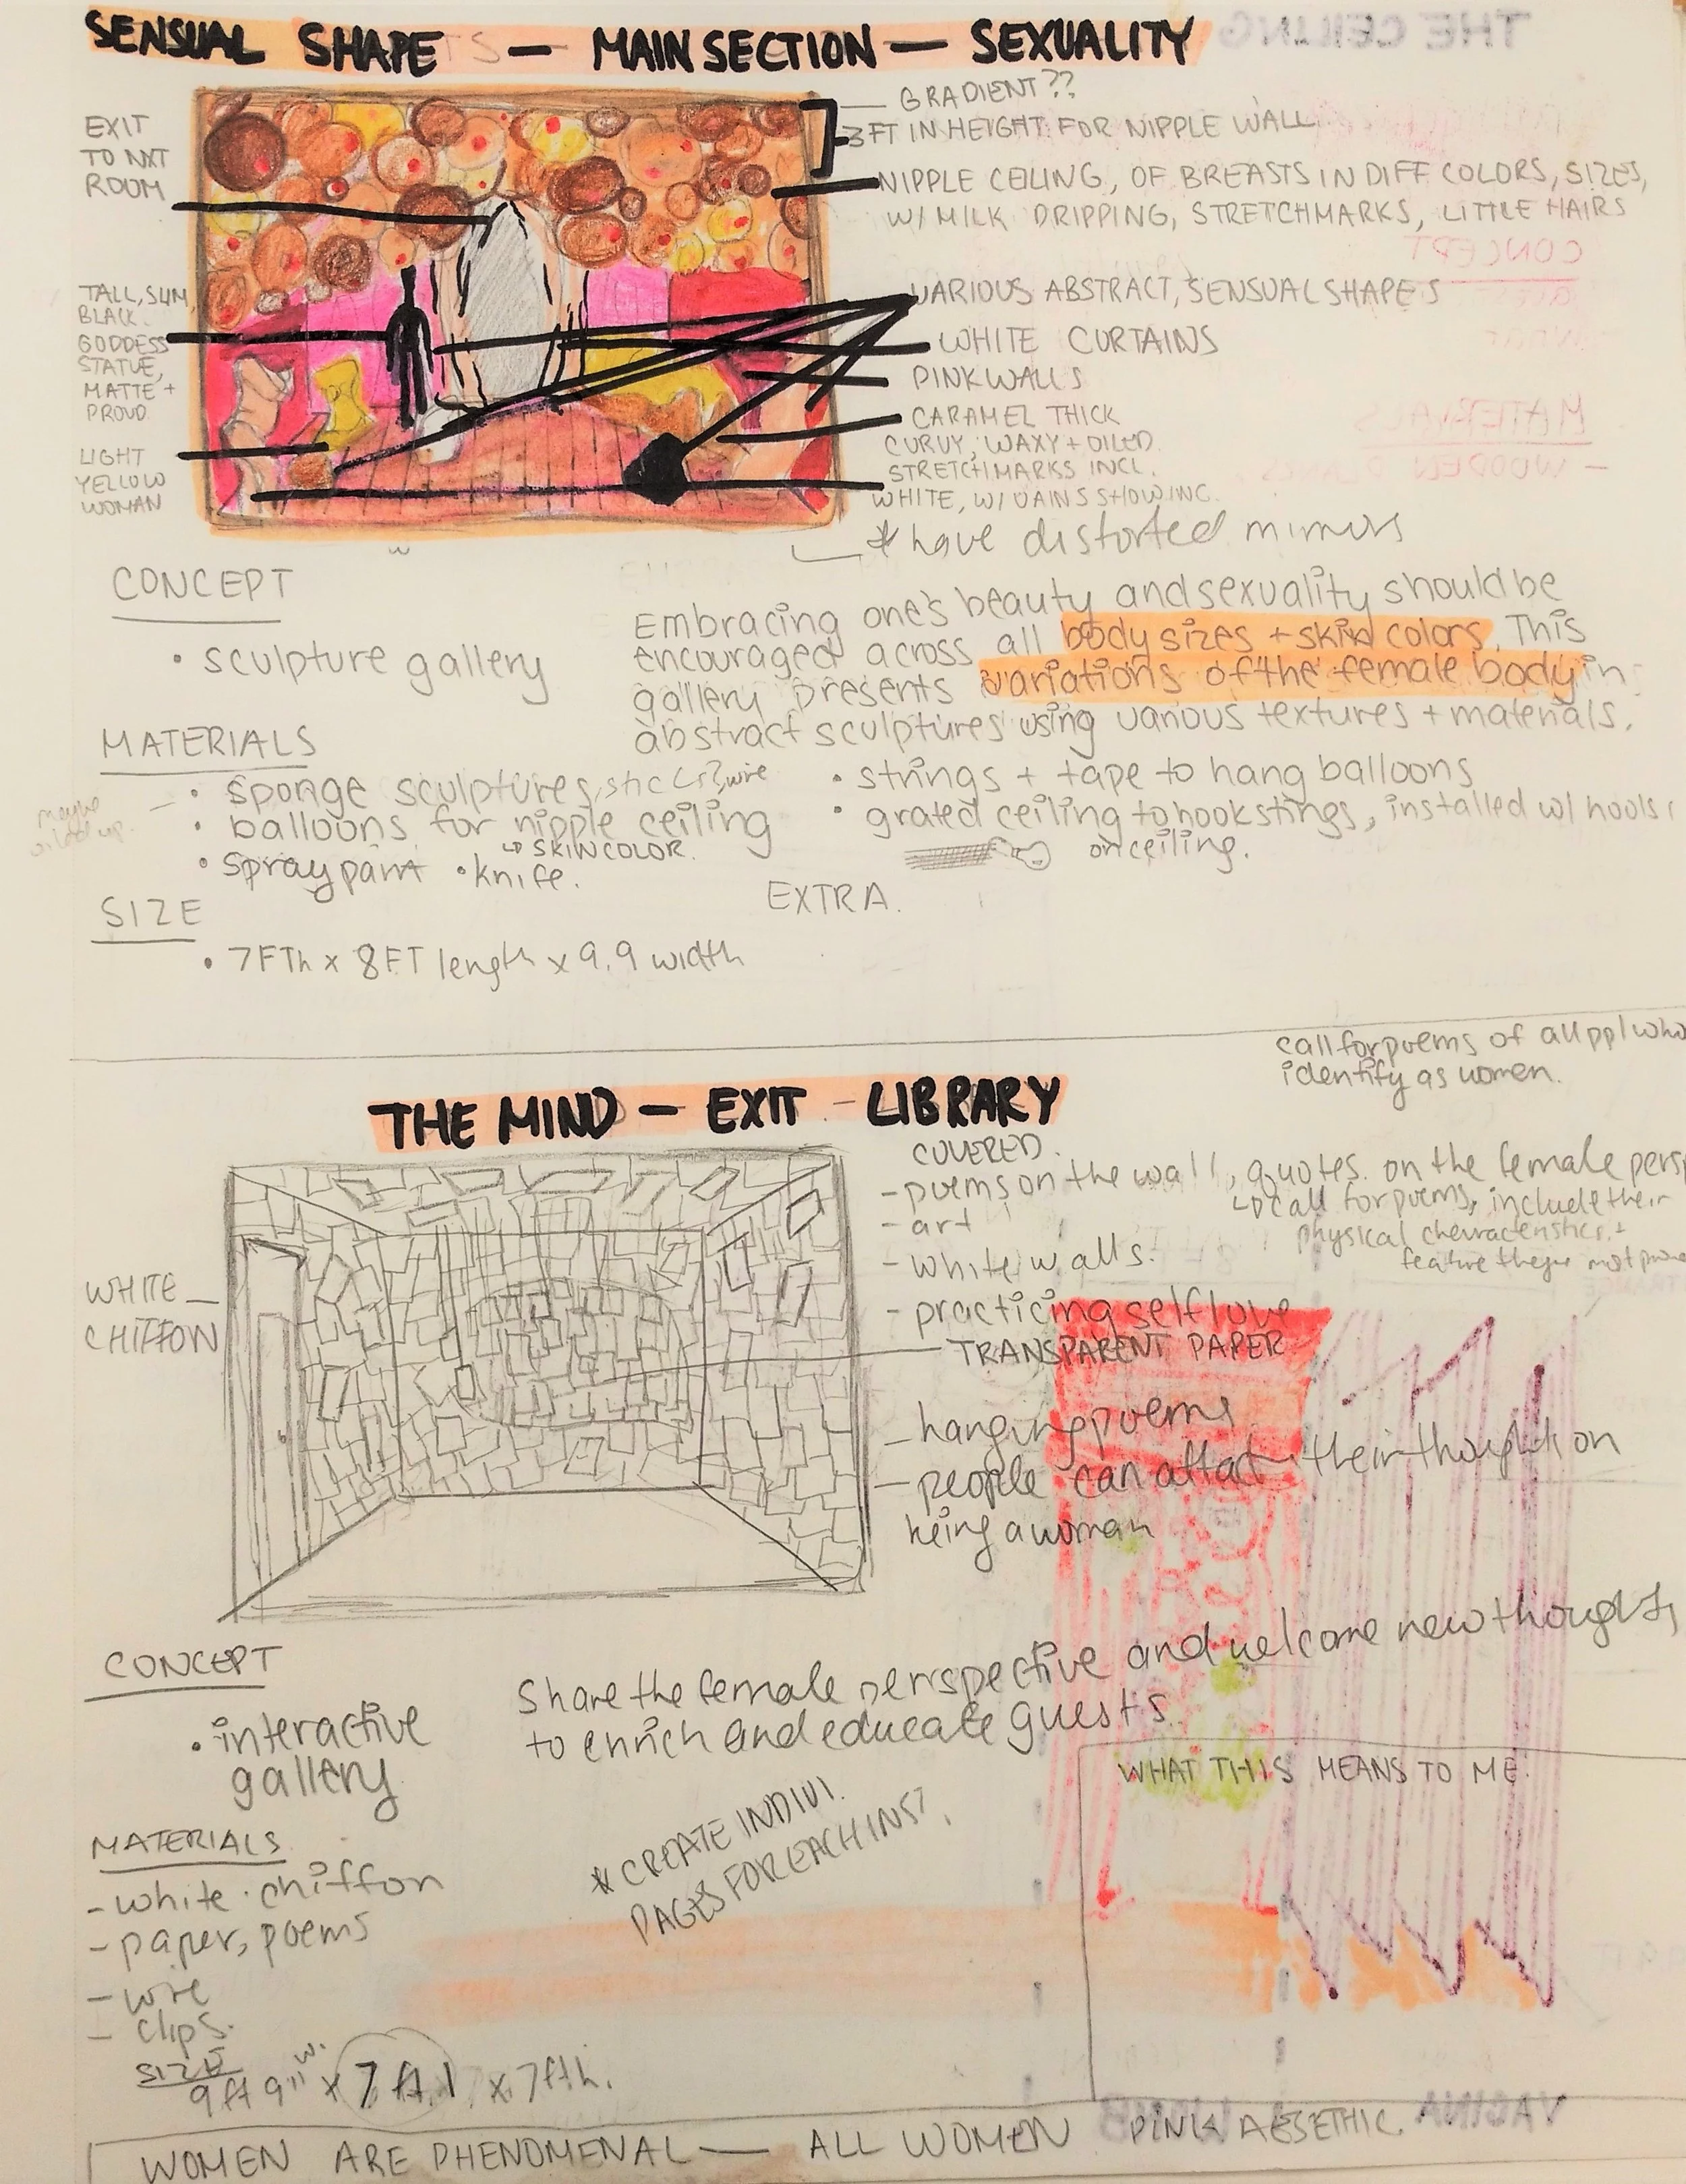 SENSUAL SHAPE — MAIN SECTION — SEXUALITY
EXIT
TO NXT
ROOM
TALL, SLIM,
BLACK
GODDESS
STATUE,
MATTE +
PROUD
LIGHT
YELLOW
WOMAN
GRADIENT??
3FT IN HEIGHT FOR NIPPLE WALL
NIPPLE CEILING, OF BREASTS IN DIFF COLORS, SIZES,
W/ MILK DRIPPING, STRETCHMARKS, LITTLE HAIRS
VARIOUS ABSTRACT, SENSUAL SHAPES
WHITE CURTAINS
PINK WALLS
CARAMEL THICK
CURVY, WAXY + OILED
STRETCHMARKS INCL.
WHITE, W/ VAINS SHOWING.
* have distorted mirrors
CONCEPT
• sculpture gallery
Embracing one's beauty and sexuality should be
encouraged across all body sizes + skin colors. This
gallery presents variations of the female body in
abstract sculptures using various textures + materials.
MATERIALS
• sponge sculptures, sticks?, wire
• balloons for nipple ceiling
↳ SKIN COLOR.
• spray paint • knife.
maybe
• strings + tape to hang balloons
• grated ceiling to hook stings, installed w/ hooks
on ceiling.
EXTRA.
SIZE
• 7FTh x 8FT length x 9.9 width
call for poems of all ppl who
identify as women.
THE MIND — EXIT - LIBRARY
WHITE
CHIFFON
COVERED.
- poems on the wall, quotes. on the female pers
↳ call for poems, include their
physical characteristics, +
feature
- art
- white walls.
- practicing self love
TRANSPARENT PAPER
- hanging poems
- people can attach their thoughts on
being a woman
CONCEPT
• interactive
gallery
Share the female perspective and welcome new thoughts,
to enrich and educate guests.
WHAT THIS MEANS TO ME:
* CREATE INDIVI.
PAGES FOR EACH INST.
MATERIALS
- white chiffon
- paper, poems
- wire
- clips.
SIZE
9ft 9" w. x 7 ft l x 7ft h.
WOMEN ARE PHENOMENAL — ALL WOMEN PINK AESETHIC.
THE CEILING
CONCEPT
MATERIALS
- WOODEN
VAGINA